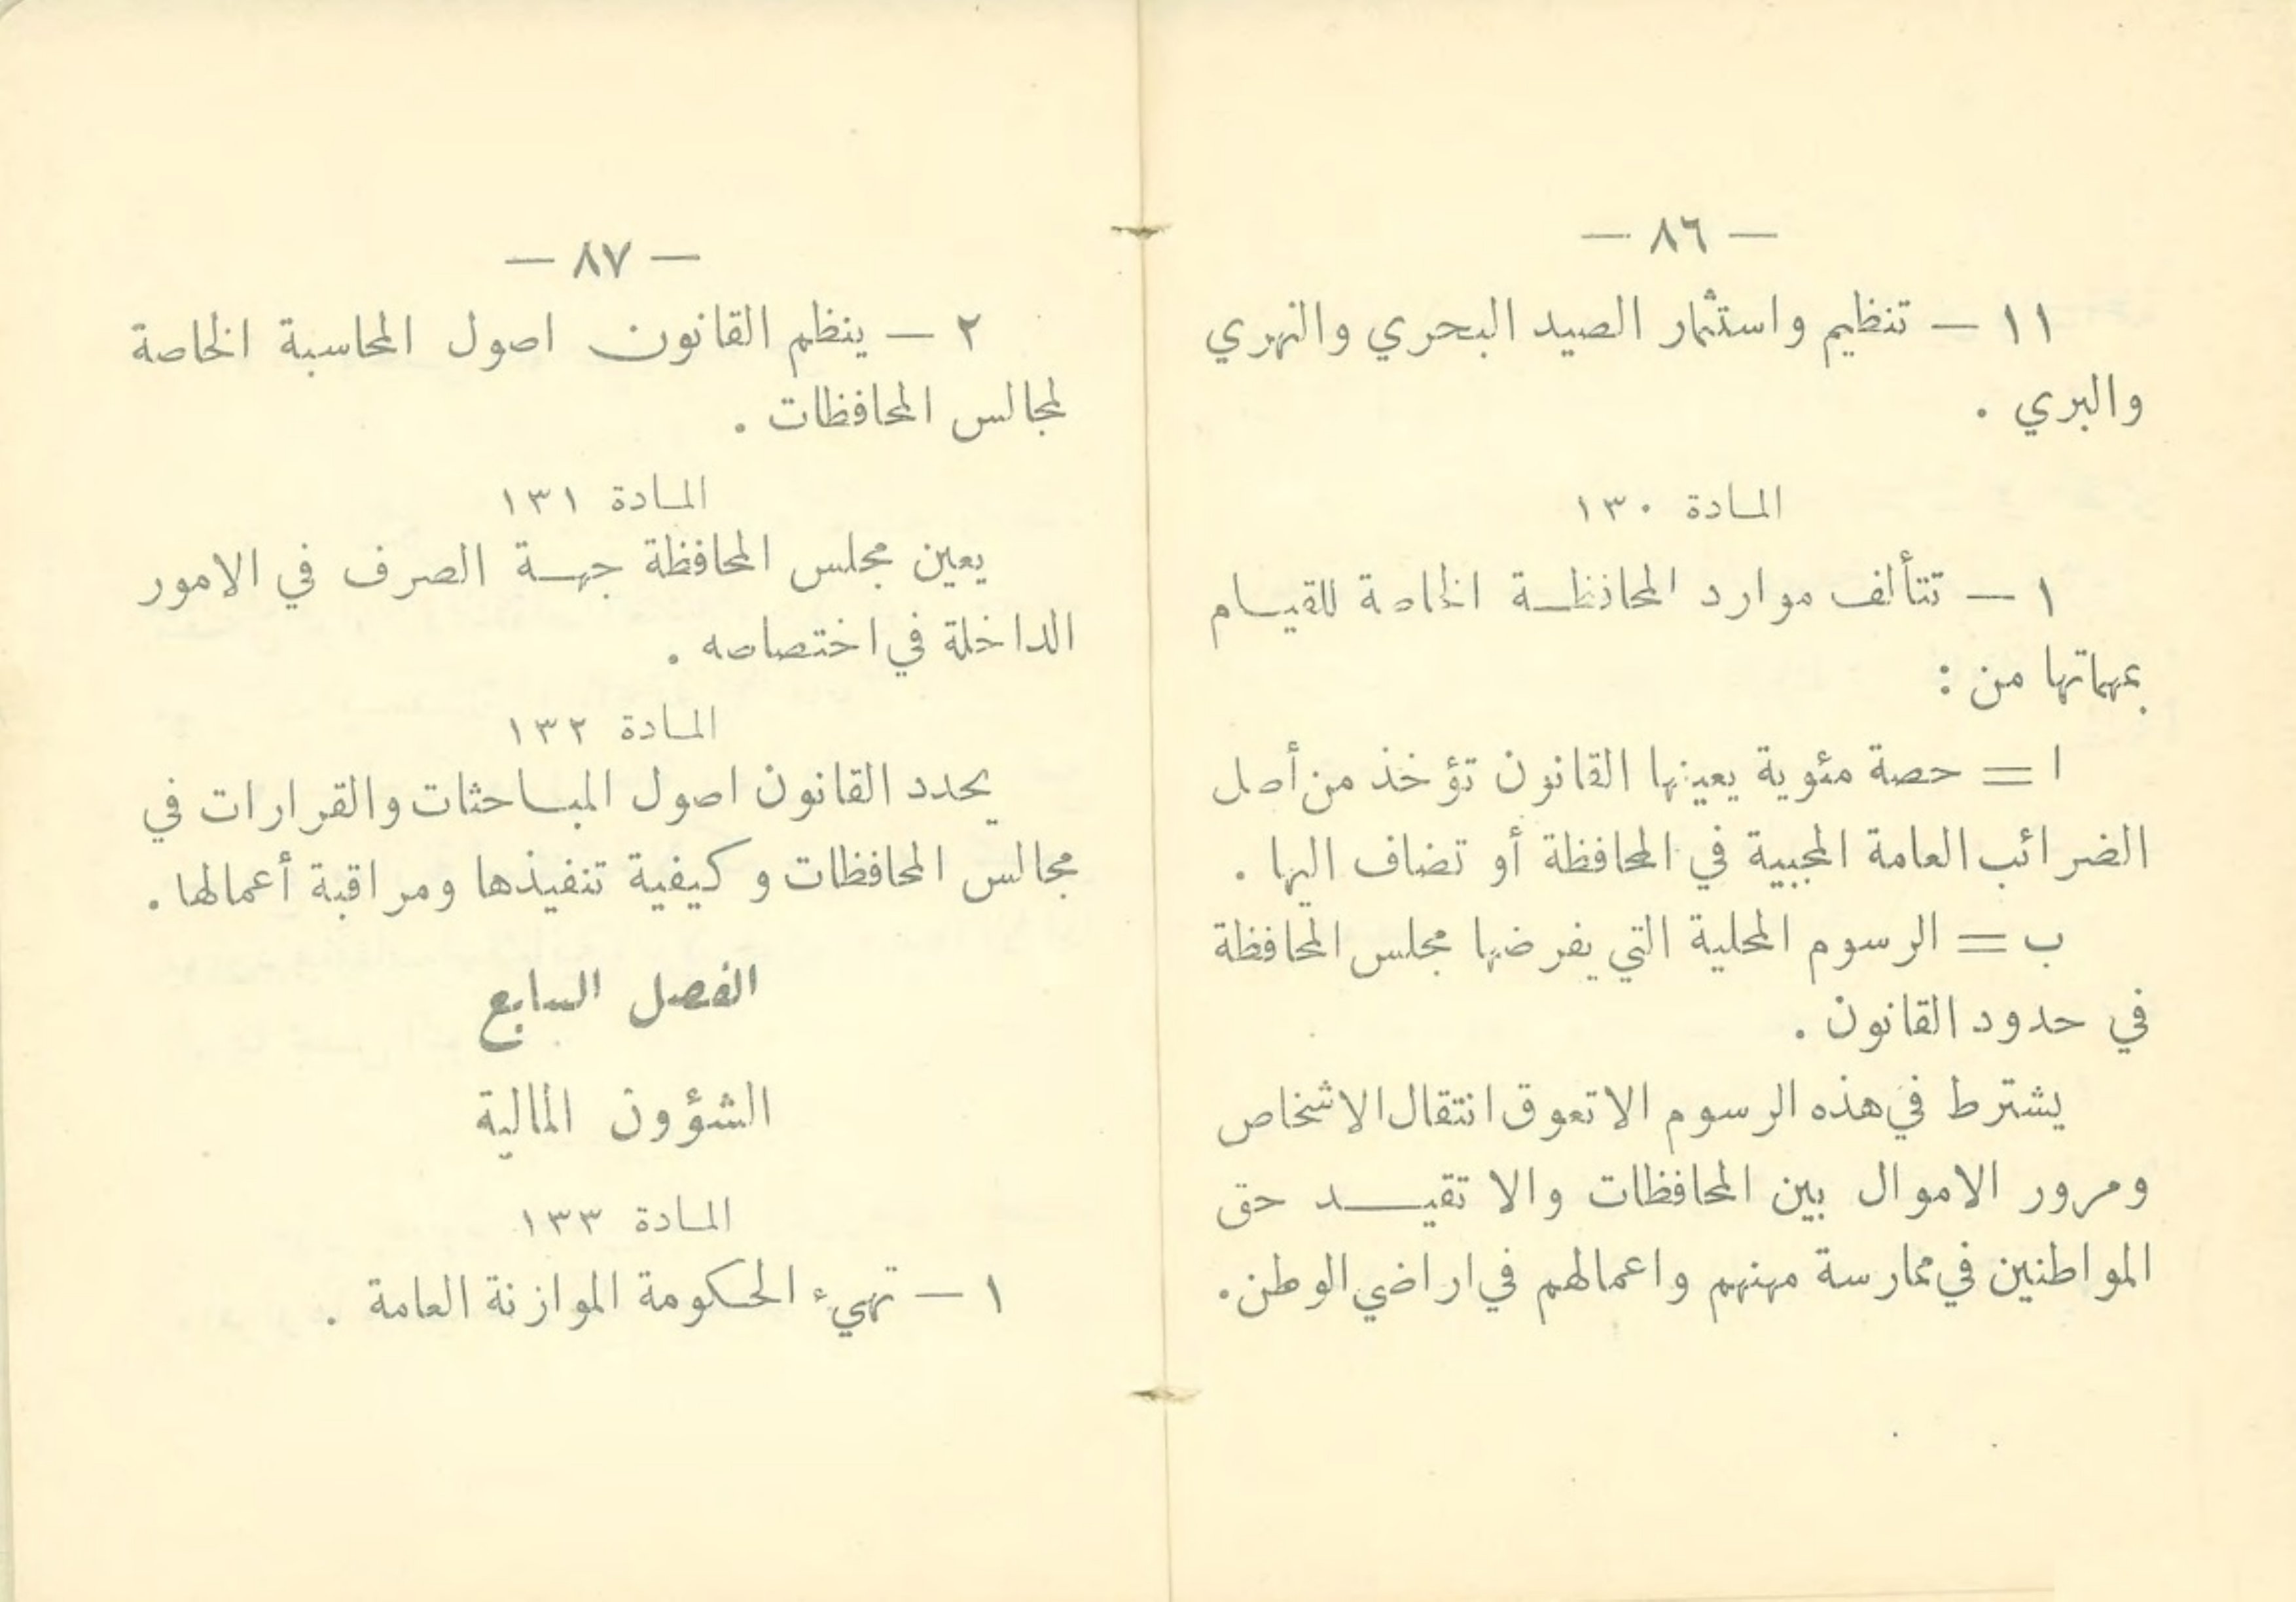 — ٨٦ —
١١ — تنظيم واستثمار الصيد البحري والنهري
والبري .
المادة ١٣٠
١ — تتألف موارد المحافظة الخاصة للقيام
بمهماتها من :
ا = حصة مئوية يعينها القانون تؤخذ من أصل
الضرائب العامة المجبية في المحافظة أو تضاف اليها .
ب = الرسوم المحلية التي يفرضها مجلس المحافظة
في حدود القانون .
يشترط في هذه الرسوم الا تعوق انتقال الاشخاص
ومرور الاموال بين المحافظات والا تقيد حق
المواطنين في ممارسة مهنهم واعمالهم في اراضي الوطن .
— ٨٧ —
٢ — ينظم القانون اصول المحاسبة الخاصة
لمجالس المحافظات .
المادة ١٣١
يعين مجلس المحافظة جهة الصرف في الامور
الداخلة في اختصاصه .
المادة ١٣٢
يحدد القانون اصول المباحثات والقرارات في
مجالس المحافظات وكيفية تنفيذها ومراقبة أعمالها .
الفصل السابع
الشؤون المالية
المادة ١٣٣
١ — تهيء الحكومة الموازنة العامة .